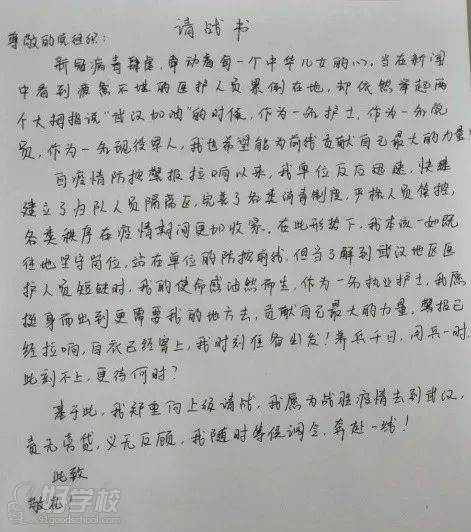 请战书
尊敬的党组织:
新冠病毒肆虐,牵动着每一个中华儿女的心,当在新闻
中看到疲惫不堪的医护人员累倒在地,却依然举起两
个大拇指说“武汉加油”的时候,作为一名护士,作为一名党
员,作为一名现役军人,我也希望能为前线贡献自己最大的力量!
自疫情防控警报拉响以来,我单位反应迅速,快速
建立了归队人员隔离区,完善了各类消毒制度,严格人员管控,
各类秩序在疫情期间更加收紧。在此形势下,我本该一如既
往地坚守岗位,站在单位的防控前线,但当了解到武汉地区医
护人员短缺时,我的使命感油然而生,作为一名执业护士,我愿
挺身而出到更需要我的地方去,贡献自己最大的力量,警报已
经拉响,白衣已经穿上,我时刻准备出发!养兵千日,用兵一时,
此刻不上,更待何时?
基于此,我郑重向上级请战,我愿为战胜疫情去到武汉,
责无旁贷,义无反顾,我随时等候调令,奔赴一线!
此致
敬礼!
好学校